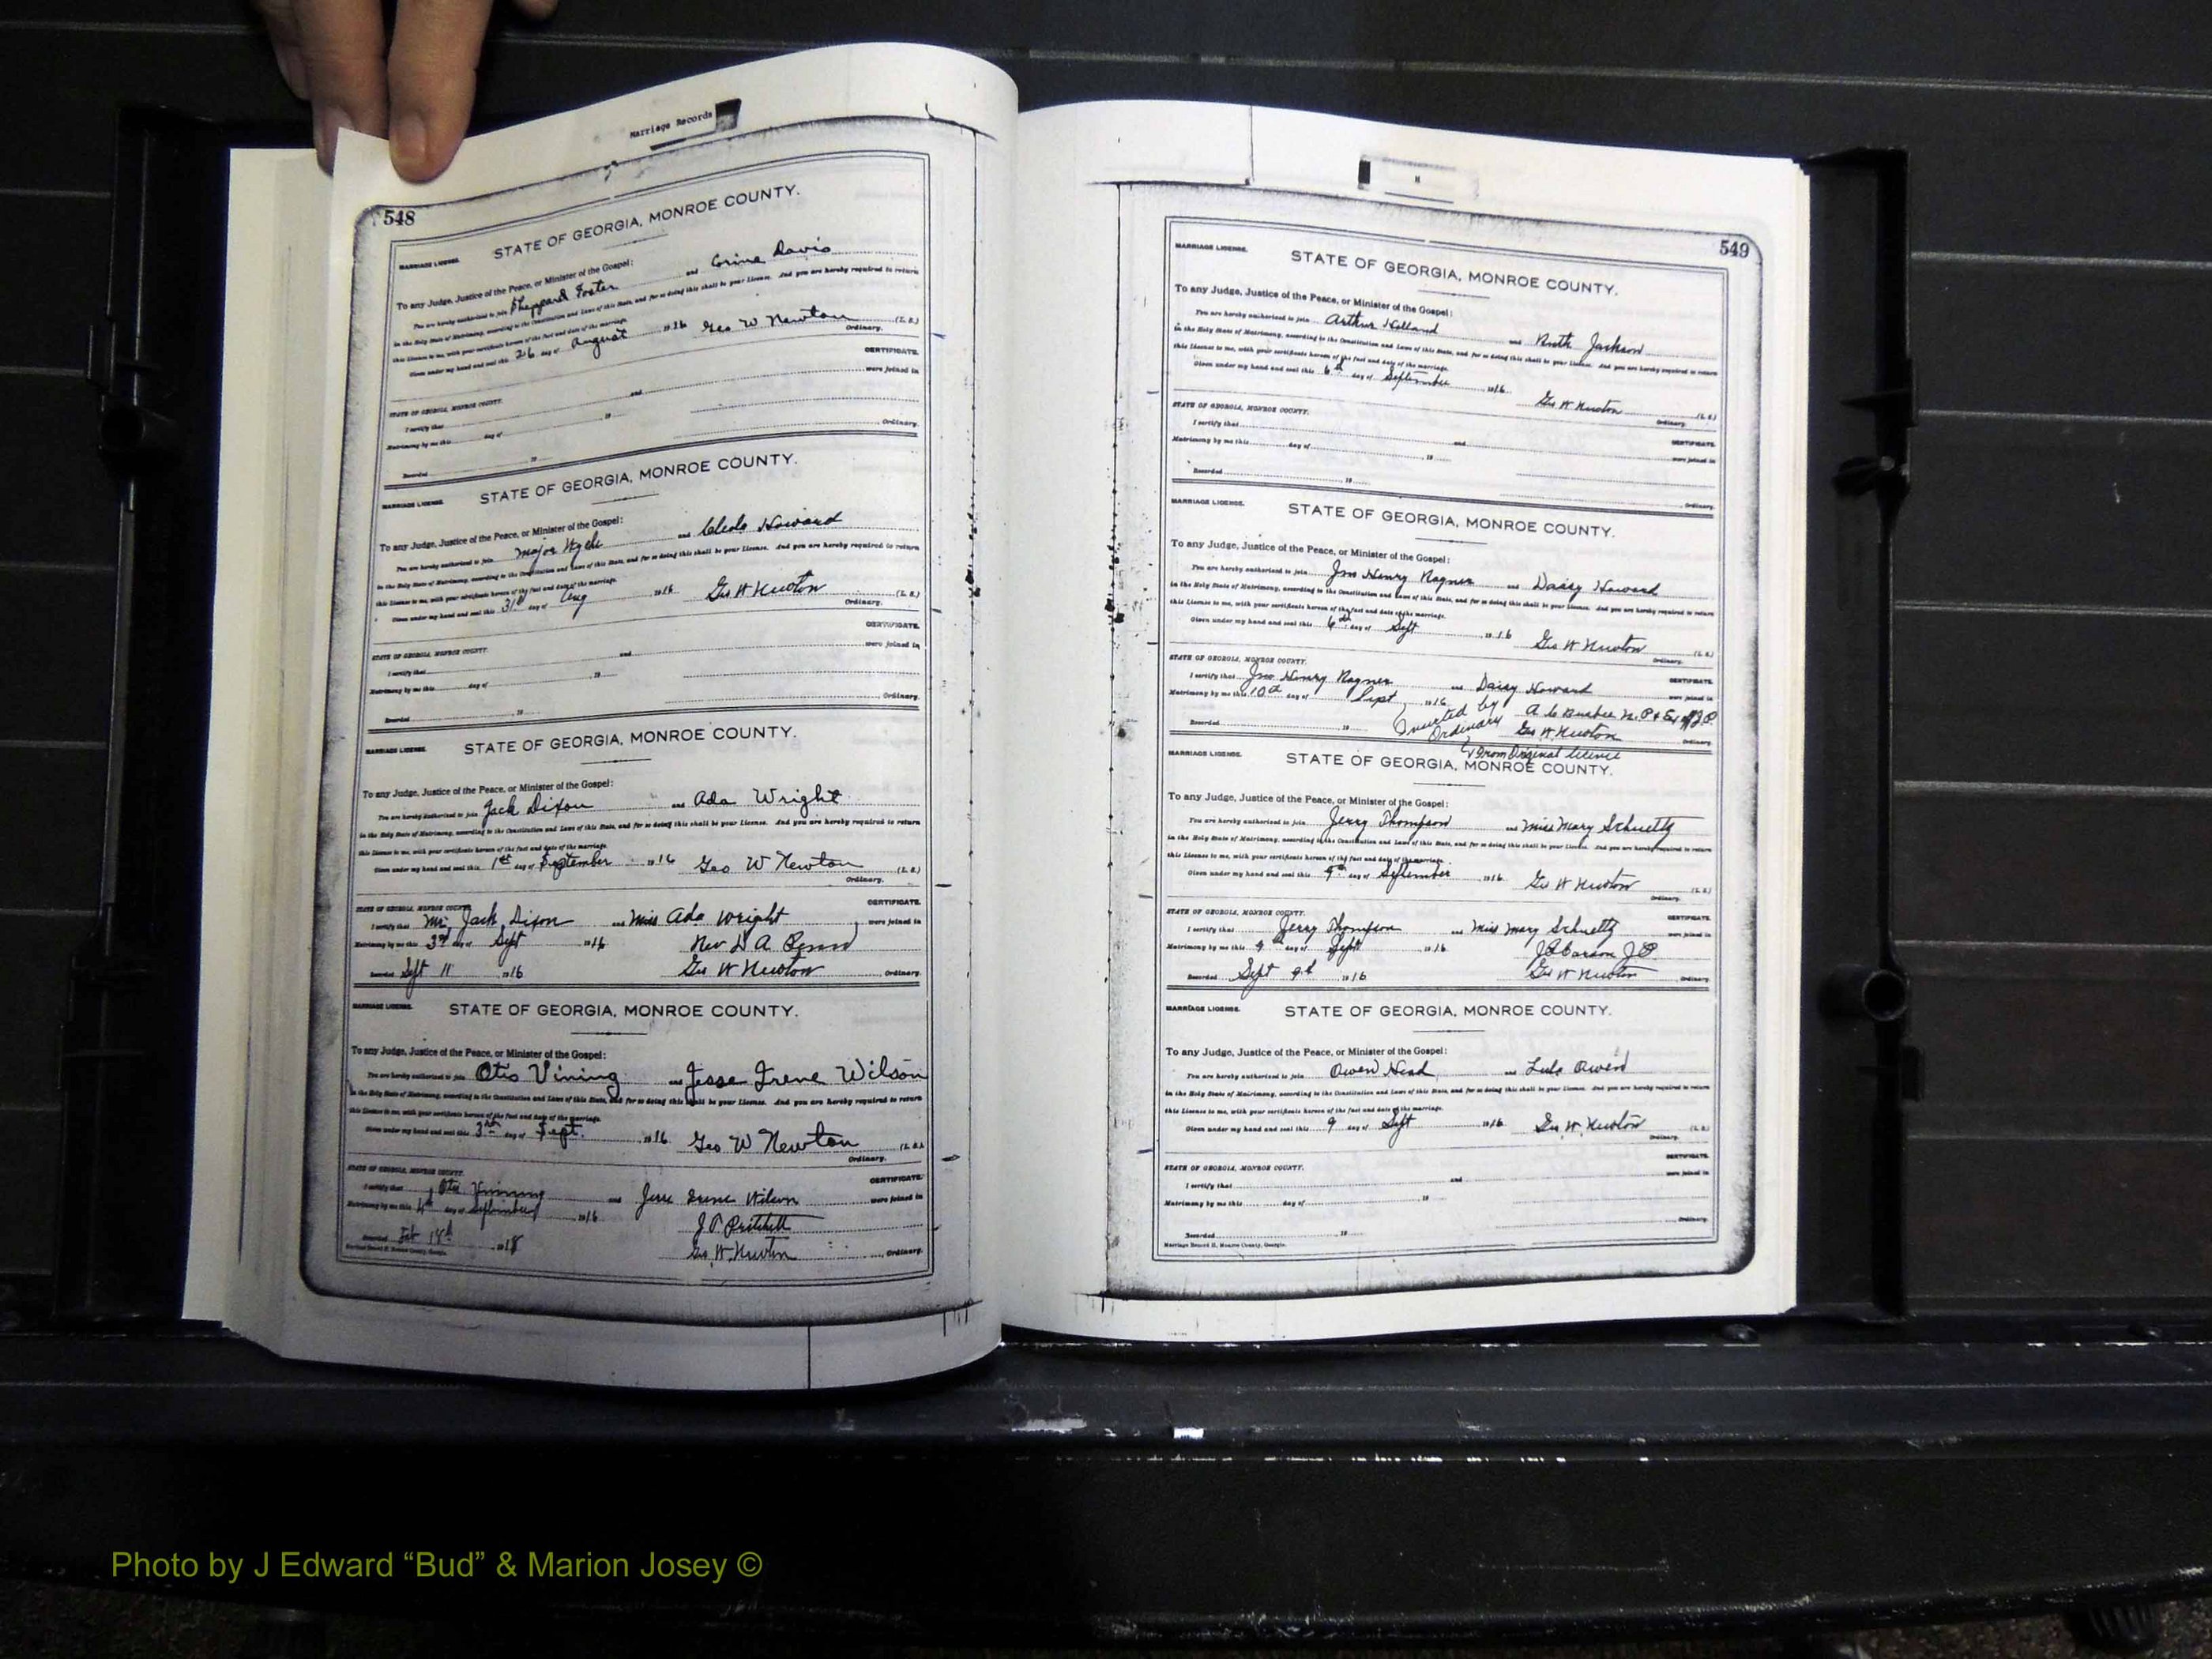 Marriage Records
548
STATE OF GEORGIA, MONROE COUNTY.
MARRIAGE LICENSE.
To any Judge, Justice of the Peace, or Minister of the Gospel:
You are hereby authorized to join Sheppard Foster and Corine Davis
in the Holy State of Matrimony, according to the Constitution and Laws of this State, and for so doing this shall be your License. And you are hereby required to return
this License to me, with your certificate hereon of the fact and date of the marriage.
Given under my hand and seal this 26 day of August 1916 Geo W Newton (L. S.)
Ordinary.
CERTIFICATE.
STATE OF GEORGIA, MONROE COUNTY.
I certify that and were joined in
Matrimony by me this day of , 19
Ordinary.
Recorded 19
STATE OF GEORGIA, MONROE COUNTY.
MARRIAGE LICENSE.
To any Judge, Justice of the Peace, or Minister of the Gospel:
You are hereby authorized to join Major and Howard
in the Holy State of Matrimony, according to the Constitution and Laws of this State, and for so doing this shall be your License. And you are hereby required to return
this License to me, with your certificate hereon of the fact and date of the marriage.
Given under my hand and seal this 31st day of Aug 1916 Geo W Newton (L. S.)
Ordinary.
CERTIFICATE.
STATE OF GEORGIA, MONROE COUNTY.
I certify that and were joined in
Matrimony by me this day of , 19
Ordinary.
Recorded , 19
STATE OF GEORGIA, MONROE COUNTY.
MARRIAGE LICENSE.
To any Judge, Justice of the Peace, or Minister of the Gospel:
You are hereby authorized to join Jack Dixon and Ada Wright
in the Holy State of Matrimony, according to the Constitution and Laws of this State, and for so doing this shall be your License. And you are hereby required to return
this License to me, with your certificate hereon of the fact and date of the marriage.
Given under my hand and seal this 1st day of September 1916 Geo W Newton (L. S.)
Ordinary.
STATE OF GEORGIA, MONROE COUNTY. CERTIFICATE.
I certify that Mr Jack Dixon and Miss Ada Wright were joined in
Matrimony by me this 3rd day of Sept 1916 Rev
Recorded Sept 11 1916 Geo W Newton Ordinary.
MARRIAGE LICENSE. STATE OF GEORGIA, MONROE COUNTY.
To any Judge, Justice of the Peace, or Minister of the Gospel:
You are hereby authorized to join Otis Vining and Jesse Irene Wilson
in the Holy State of Matrimony, according to the Constitution and Laws of this State, and for so doing this shall be your License. And you are hereby required to return
this License to me, with your certificate hereon of the fact and date of the marriage.
Given under my hand and seal this 3rd day of Sept. 1916 Geo W Newton (L. S.)
Ordinary.
STATE OF GEORGIA, MONROE COUNTY. CERTIFICATE.
I certify that Otis Vining and Jesse Irene Wilson were joined in
Matrimony by me this 4th day of September 1916 J T Pritchett
Recorded Feb 14th 1918 Geo. W. Newton Ordinary.
Marriage Record H, Monroe County, Georgia.
H
549
MARRIAGE LICENSE.
STATE OF GEORGIA, MONROE COUNTY.
To any Judge, Justice of the Peace, or Minister of the Gospel:
You are hereby authorized to join Arthur Holland and Ruth Jackson
in the Holy State of Matrimony, according to the Constitution and Laws of this State, and for so doing this shall be your License. And you are hereby required to return
this License to me, with your certificate hereon of the fact and date of the marriage.
Given under my hand and seal this 6th day of September 1916 Geo W Newton (L. S.)
Ordinary.
STATE OF GEORGIA, MONROE COUNTY. CERTIFICATE.
I certify that and were joined in
Matrimony by me this day of , 19
Recorded , 19 Ordinary.
MARRIAGE LICENSE.
STATE OF GEORGIA, MONROE COUNTY.
To any Judge, Justice of the Peace, or Minister of the Gospel:
You are hereby authorized to join Jno Henry Ragner and Daisy Howard
in the Holy State of Matrimony, according to the Constitution and Laws of this State, and for so doing this shall be your License. And you are hereby required to return
this License to me, with your certificate hereon of the fact and date of the marriage.
Given under my hand and seal this 6th day of Sept 1916 Geo W Newton (L. S.)
Ordinary.
STATE OF GEORGIA, MONROE COUNTY. CERTIFICATE.
I certify that Jno Henry Ragner and Daisy Howard were joined in
Matrimony by me this 10th day of Sept, 1916 A C Busbee N. P & Ex off J. P.
Recorded 19 Inserted by Ordinary Geo W Newton Ordinary.
From Original licence
MARRIAGE LICENSE.
STATE OF GEORGIA, MONROE COUNTY.
To any Judge, Justice of the Peace, or Minister of the Gospel:
You are hereby authorized to join Jerry Thompson and Miss Mary Schuettz
in the Holy State of Matrimony, according to the Constitution and Laws of this State, and for so doing this shall be your License. And you are hereby required to return
this License to me, with your certificate hereon of the fact and date of the marriage.
Given under my hand and seal this 9th day of September 1916 Geo W Newton (L. S.)
STATE OF GEORGIA, MONROE COUNTY. CERTIFICATE.
I certify that Jerry Thompson and Miss Mary Schuettz were joined in
Matrimony by me this 9th day of Sept 1916 J P Carson J P.
Recorded Sept 9th 1916 Geo W Newton Ordinary.
MARRIAGE LICENSE. STATE OF GEORGIA, MONROE COUNTY.
To any Judge, Justice of the Peace, or Minister of the Gospel:
You are hereby authorized to join Owen Head and Lula Owen
in the Holy State of Matrimony, according to the Constitution and Laws of this State, and for so doing this shall be your License. And you are hereby required to return
this License to me, with your certificate hereon of the fact and date of the marriage.
Given under my hand and seal this 9 day of Sept 1916 Geo. W. Newton (L. S.)
Ordinary.
STATE OF GEORGIA, MONROE COUNTY. CERTIFICATE.
I certify that and were joined in
Matrimony by me this day of , 19
Ordinary.
Recorded , 19
Marriage Record H, Monroe County, Georgia.
Photo by J Edward “Bud” & Marion Josey ©